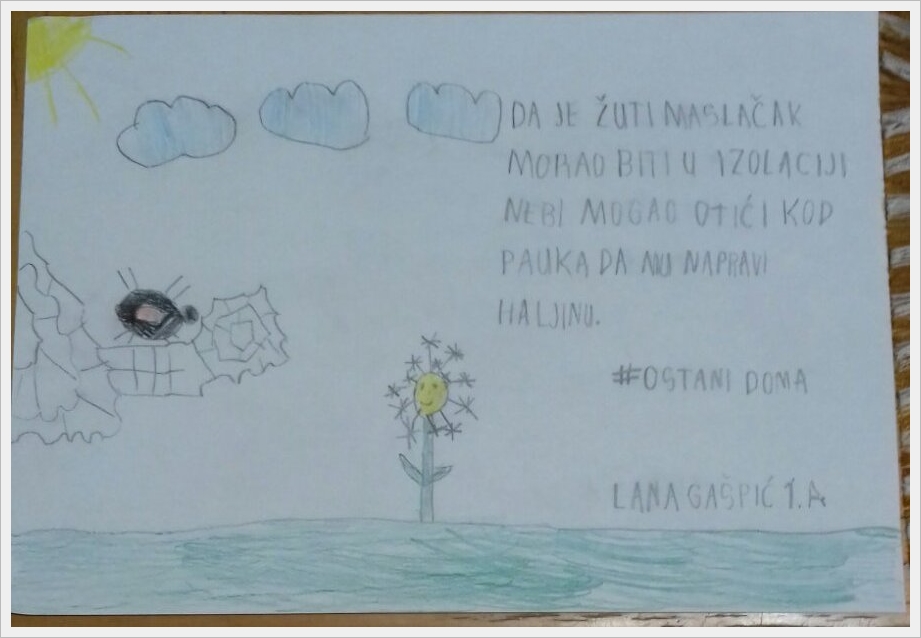 DA JE ŽUTI MASLAČAK
MORAO BITI U IZOLACIJI
NEBI MOGAO OTIĆI KOD
PAUKA DA MU NAPRAVI
HALJINU.
#OSTANI DOMA
LANA GAŠPIĆ 1.A